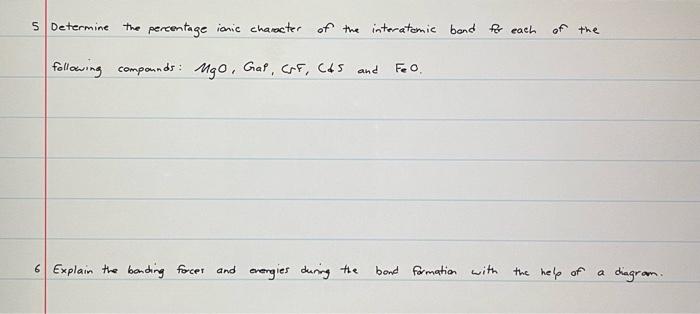 5 Determine the percentage ionic character of the interatomic bond for each of the
following compounds: MgO, GaP, CsF, CdS and FeO.
6 Explain the bonding forces and energies during the bond formation with the help of a diagram.